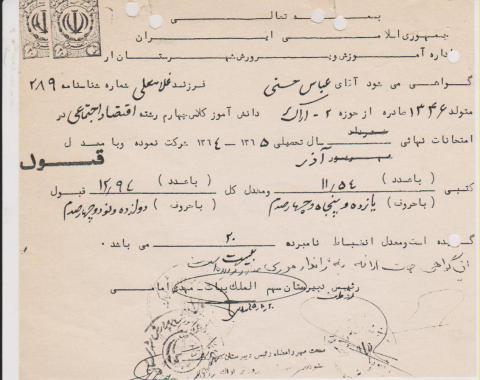 بسمه تعالی
جمهوری اسلامی ایران
اداره آموزش و پرورش شهرستان ار
گواهی می شود آقای عباس حسنی فرزند غلامعلی شماره شناسنامه ۲۸۹
متولد ۱۳۴۶ صادره از حوزه ۲- اراک دانش آموز کلاس چهارم رشته اقتصاد اجتماعی در
امتحانات نهائی خرداد سال تحصیلی ۱۳۶۵ - ۱۳۶۴ شرکت نموده و با معدل
شهریور آذر قبول
کتبی (با عدد) ۱۱/۵۴ ومعدل کل (با عدد) ۱۲/۹۴ قبول
(با حروف) یازده و پنجاه و چهار صدم (با حروف) دوازده و نود و چهار صدم
گردیده است ومعدل انضباط نامبرده ۲۰ می باشد
بیست
این گواهی جهت ارائه به
رئیس دبیرستان سهم الملک بیات - مهدی امامی
صحت مهر و امضاء رئیس دبیرستان